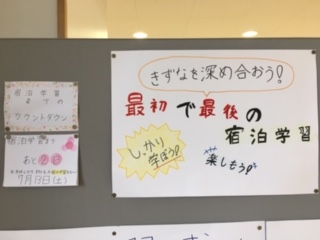 宿泊学習
までの
カウントダウン
宿泊学習まで
あと
7月13日(土)
きずなを深め合おう!
最初で最後の
宿泊学習
しっかり
学ぼう!
楽しもう!